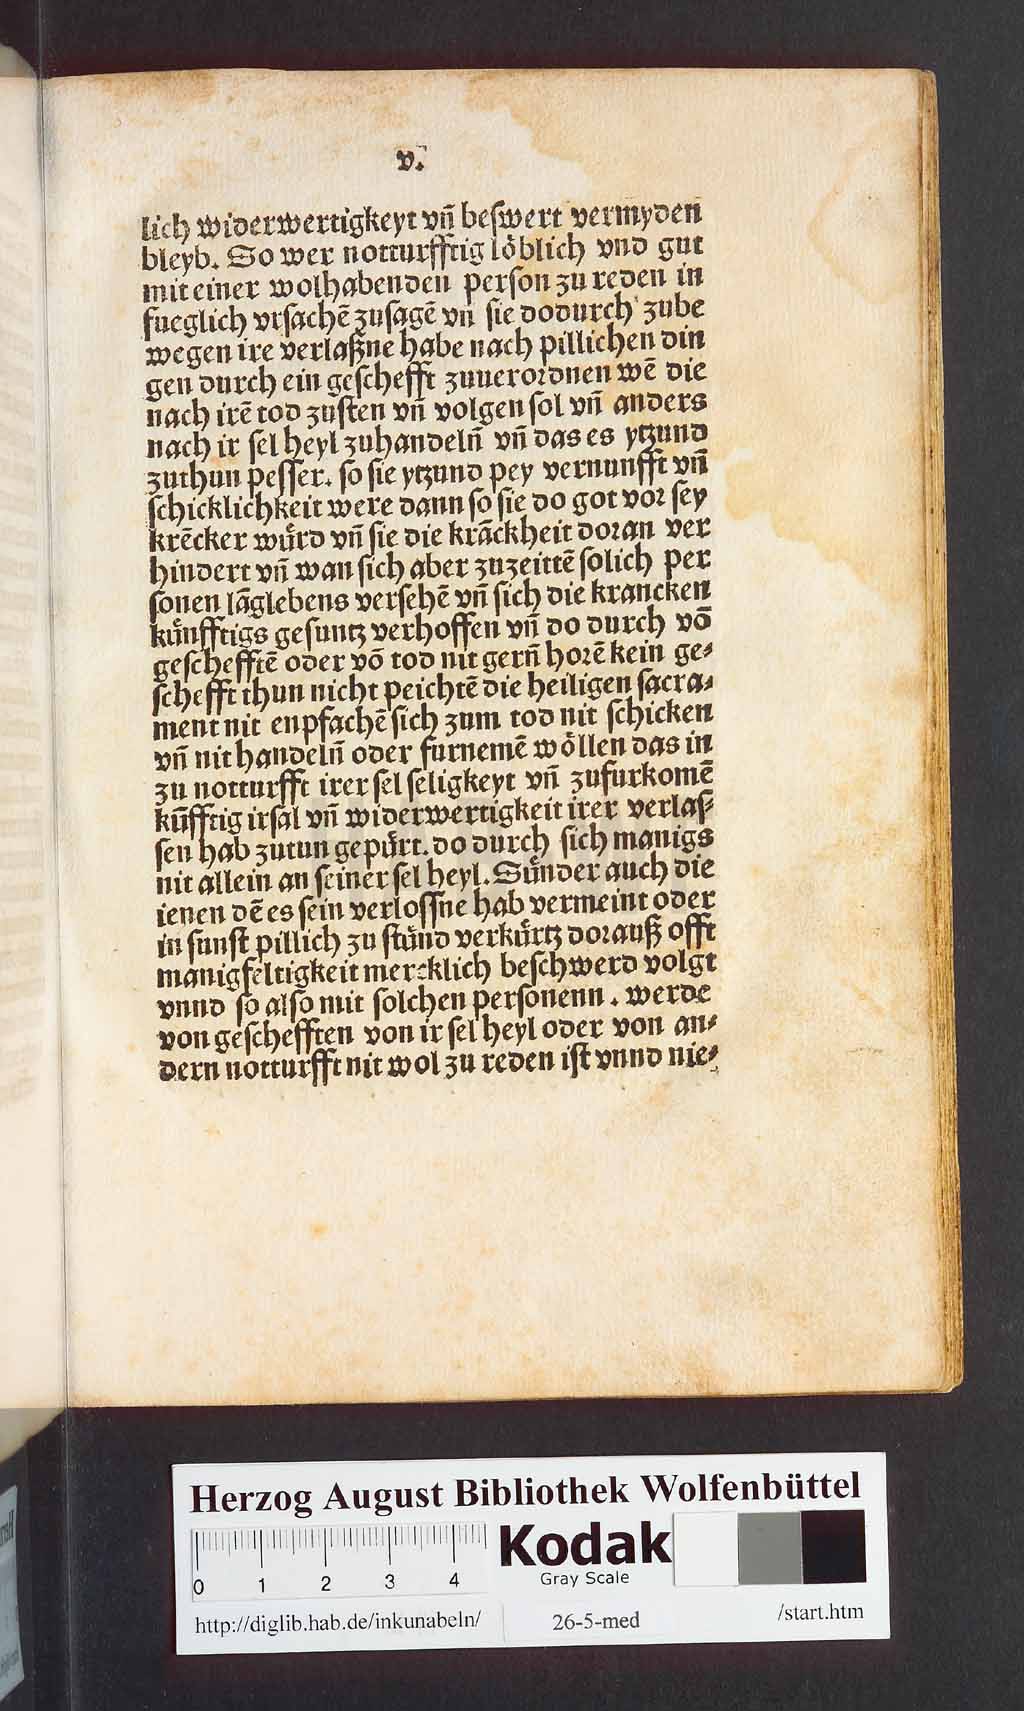 v.
lich widerwertigkeyt vn̄ beſwert vermyden
bleyb. So wer notturfftig loͤblich vnd gut
mit einer wolhabenden perſon zu reden in
fueglich vrſachē zuſagē vn̄ ſie dodurch zube
wegen ire verlaßne habe nach pillichen din
gen durch ein geſchefft zuuerordnen wē die
nach irē tod zuſten vn̄ volgen ſol vn̄ anders
nach ir ſel heyl zuhandeln̄ vn̄ das es ytzund
zuthun peſſer. ſo ſie ytzund pey vernunfft vn̄
ſchicklichkeit were dann ſo ſie do got vor ſey
krēcker wuͤrd vn̄ ſie die krāckheit doran ver
hindert vn̄ wan ſich aber zuzeittē ſolich per
ſonen lāglebens verſehē vn̄ ſich die krancken
kuͤnfftigs geſuntz verhoffen vn̄ do durch vō
geſchefftē oder vō tod nit gern̄ horē kein ge⸗
ſchefft thun nicht peichtē die heiligen ſacra⸗
ment nit enpfachē ſich zum tod nit ſchicken
vn̄ nit handeln̄ oder furnemē woͤllen das in
zu notturfft irer ſel ſeligkeyt vn̄ zufurkomē
kūfftig irſal vn̄ widerwertigkeit irer verlaſ⸗
ſen hab zutun gepuͤrt. do durch ſich manigs
nit allein an ſeiner ſel heyl. Suͤnder auch die
ienen dē es ſein verloſſne hab vermeint oder
in ſunſt pillich zu ſtuͤnd verkuͤrtz dorauß offt
manigfeltigkeit mercklich beſchwerd volgt
vnnd ſo alſo mit ſolchen perſonenn. werde
von geſchefften von ir ſel heyl oder von an⸗
dern notturfft nit wol zu reden iſt vnnd nie⸗
Herzog August Bibliothek Wolfenbüttel
0 1 2 3 4
Kodak
Gray Scale
http://diglib.hab.de/inkunabeln/ 26-5-med /start.htm